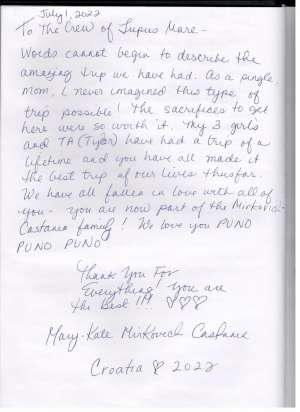 July 1, 2022
To The Crew of Lupus Mare -
Words cannot begin to describe the
amazing trip we have had. As a single
mom, I never imagined this type of
trip possible! The sacrifices to get
here were so worth it. My 3 girls
and TA (Tyler) have had a trip of a
lifetime and you have all made it
the best trip of our lives thusfar.
We have all fallen in love with all of
you - you are now part of the Mirkovich-
Castania family! We love you PUNO
PUNO PUNO
Thank You For
Everything! You are
the Best!!! ♡♡♡
Mary-Kate Mirkovich Castania
Croatia ♡ 2022